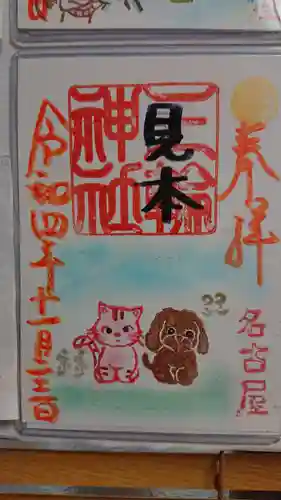 奉拝
名古屋
三輪神社
見本
令和四年十一月三日